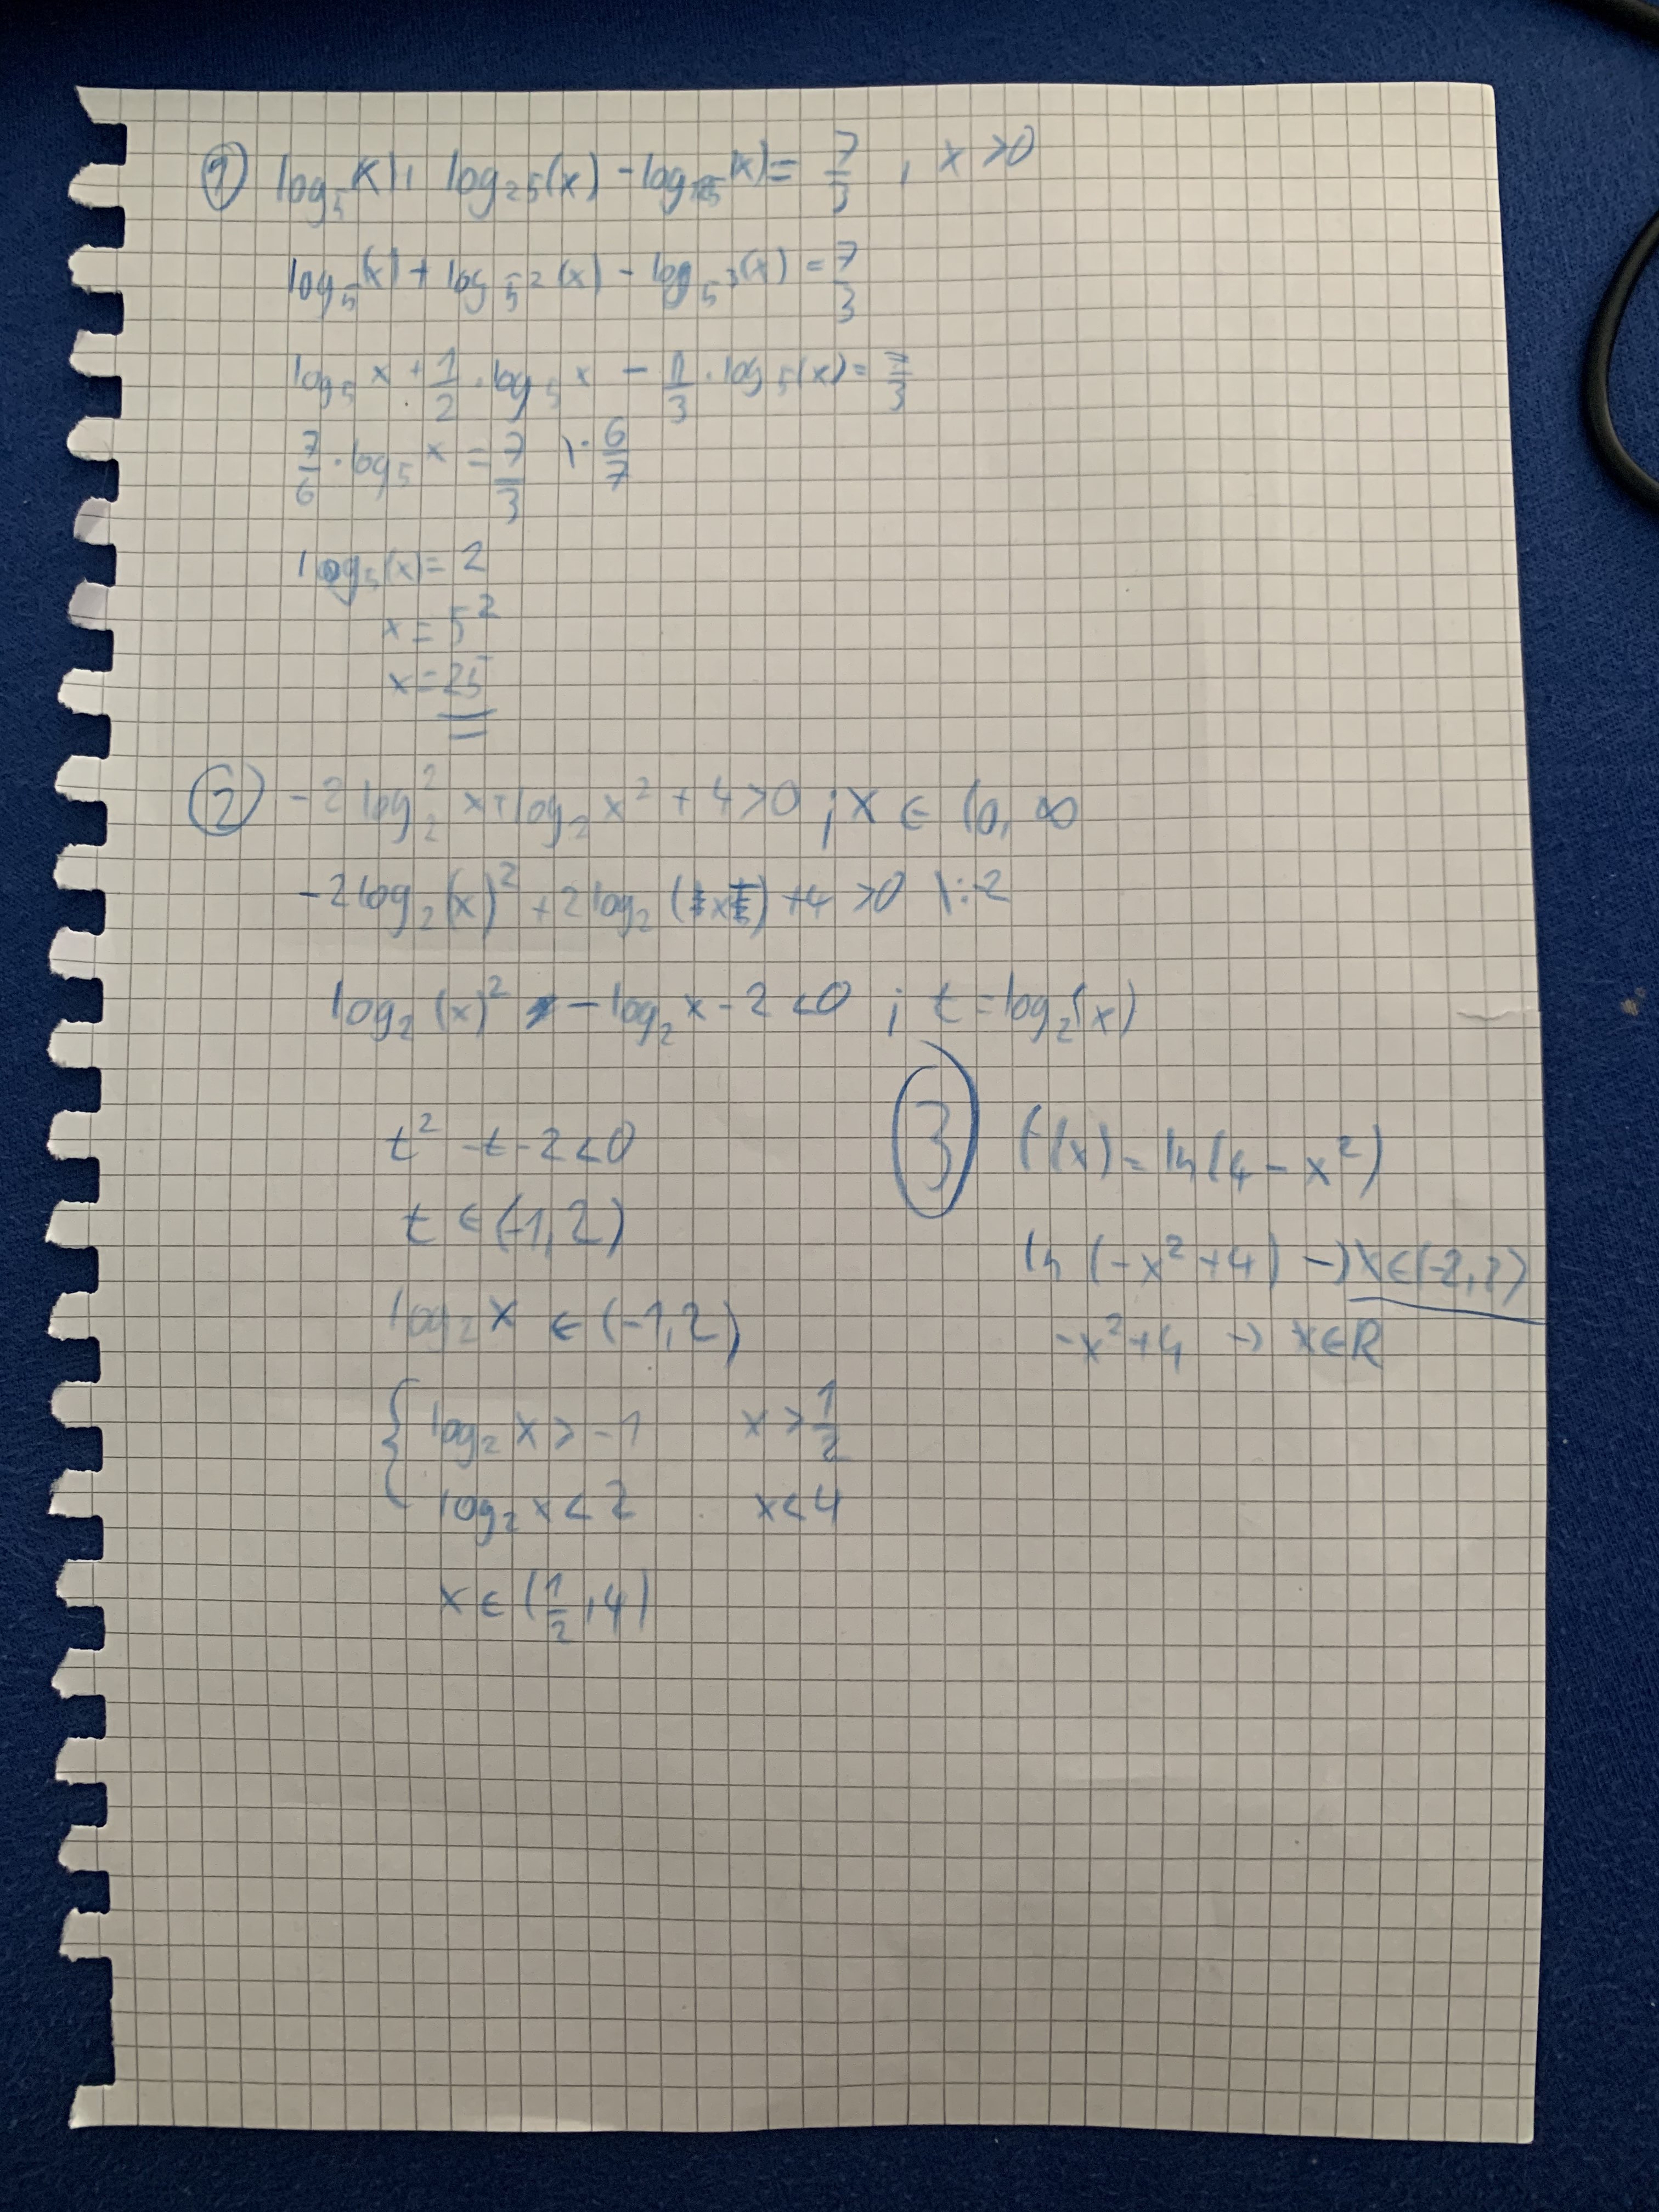 ① log₅(x)+ log₂₅(x) - log₁₂₅(x)= 7/3 , x >0
log₅(x) + log₅²(x) - log₅³(x) = 7/3
log₅ x + 1/2 · log₅ x - 1/3 · log₅(x) = 7/3
7/6 · log₅ x = 7/3 \· 6/7
log₅(x) = 2
x = 5²
x = 25
② -2 log₂² x + log₂ x² + 4 >0 ; x ∈ (0, ∞
-2log₂(x)² + 2log₂ (x) +4 >0 \:-2
log₂ (x)² - log₂ x - 2 <0 ; t = log₂(x)
t² -t -2 <0
t ∈ (-1,2)
log₂ x ∈ (-1,2)
{ log₂ x > -1 x > 1/2
log₂ x < 2 x < 4
x ∈ (1/2 , 4)
③ f(x) = ln(4 - x²)
ln (-x² +4) -> x ∈ (-2,2)
-x² +4 -> x ∈ R